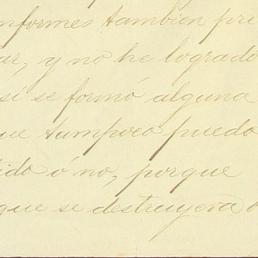 nformes tambien pri
ar, y no he logrado
si se formó alguna
ue tampoco puedo
ido ó no, porque
que se destruyera